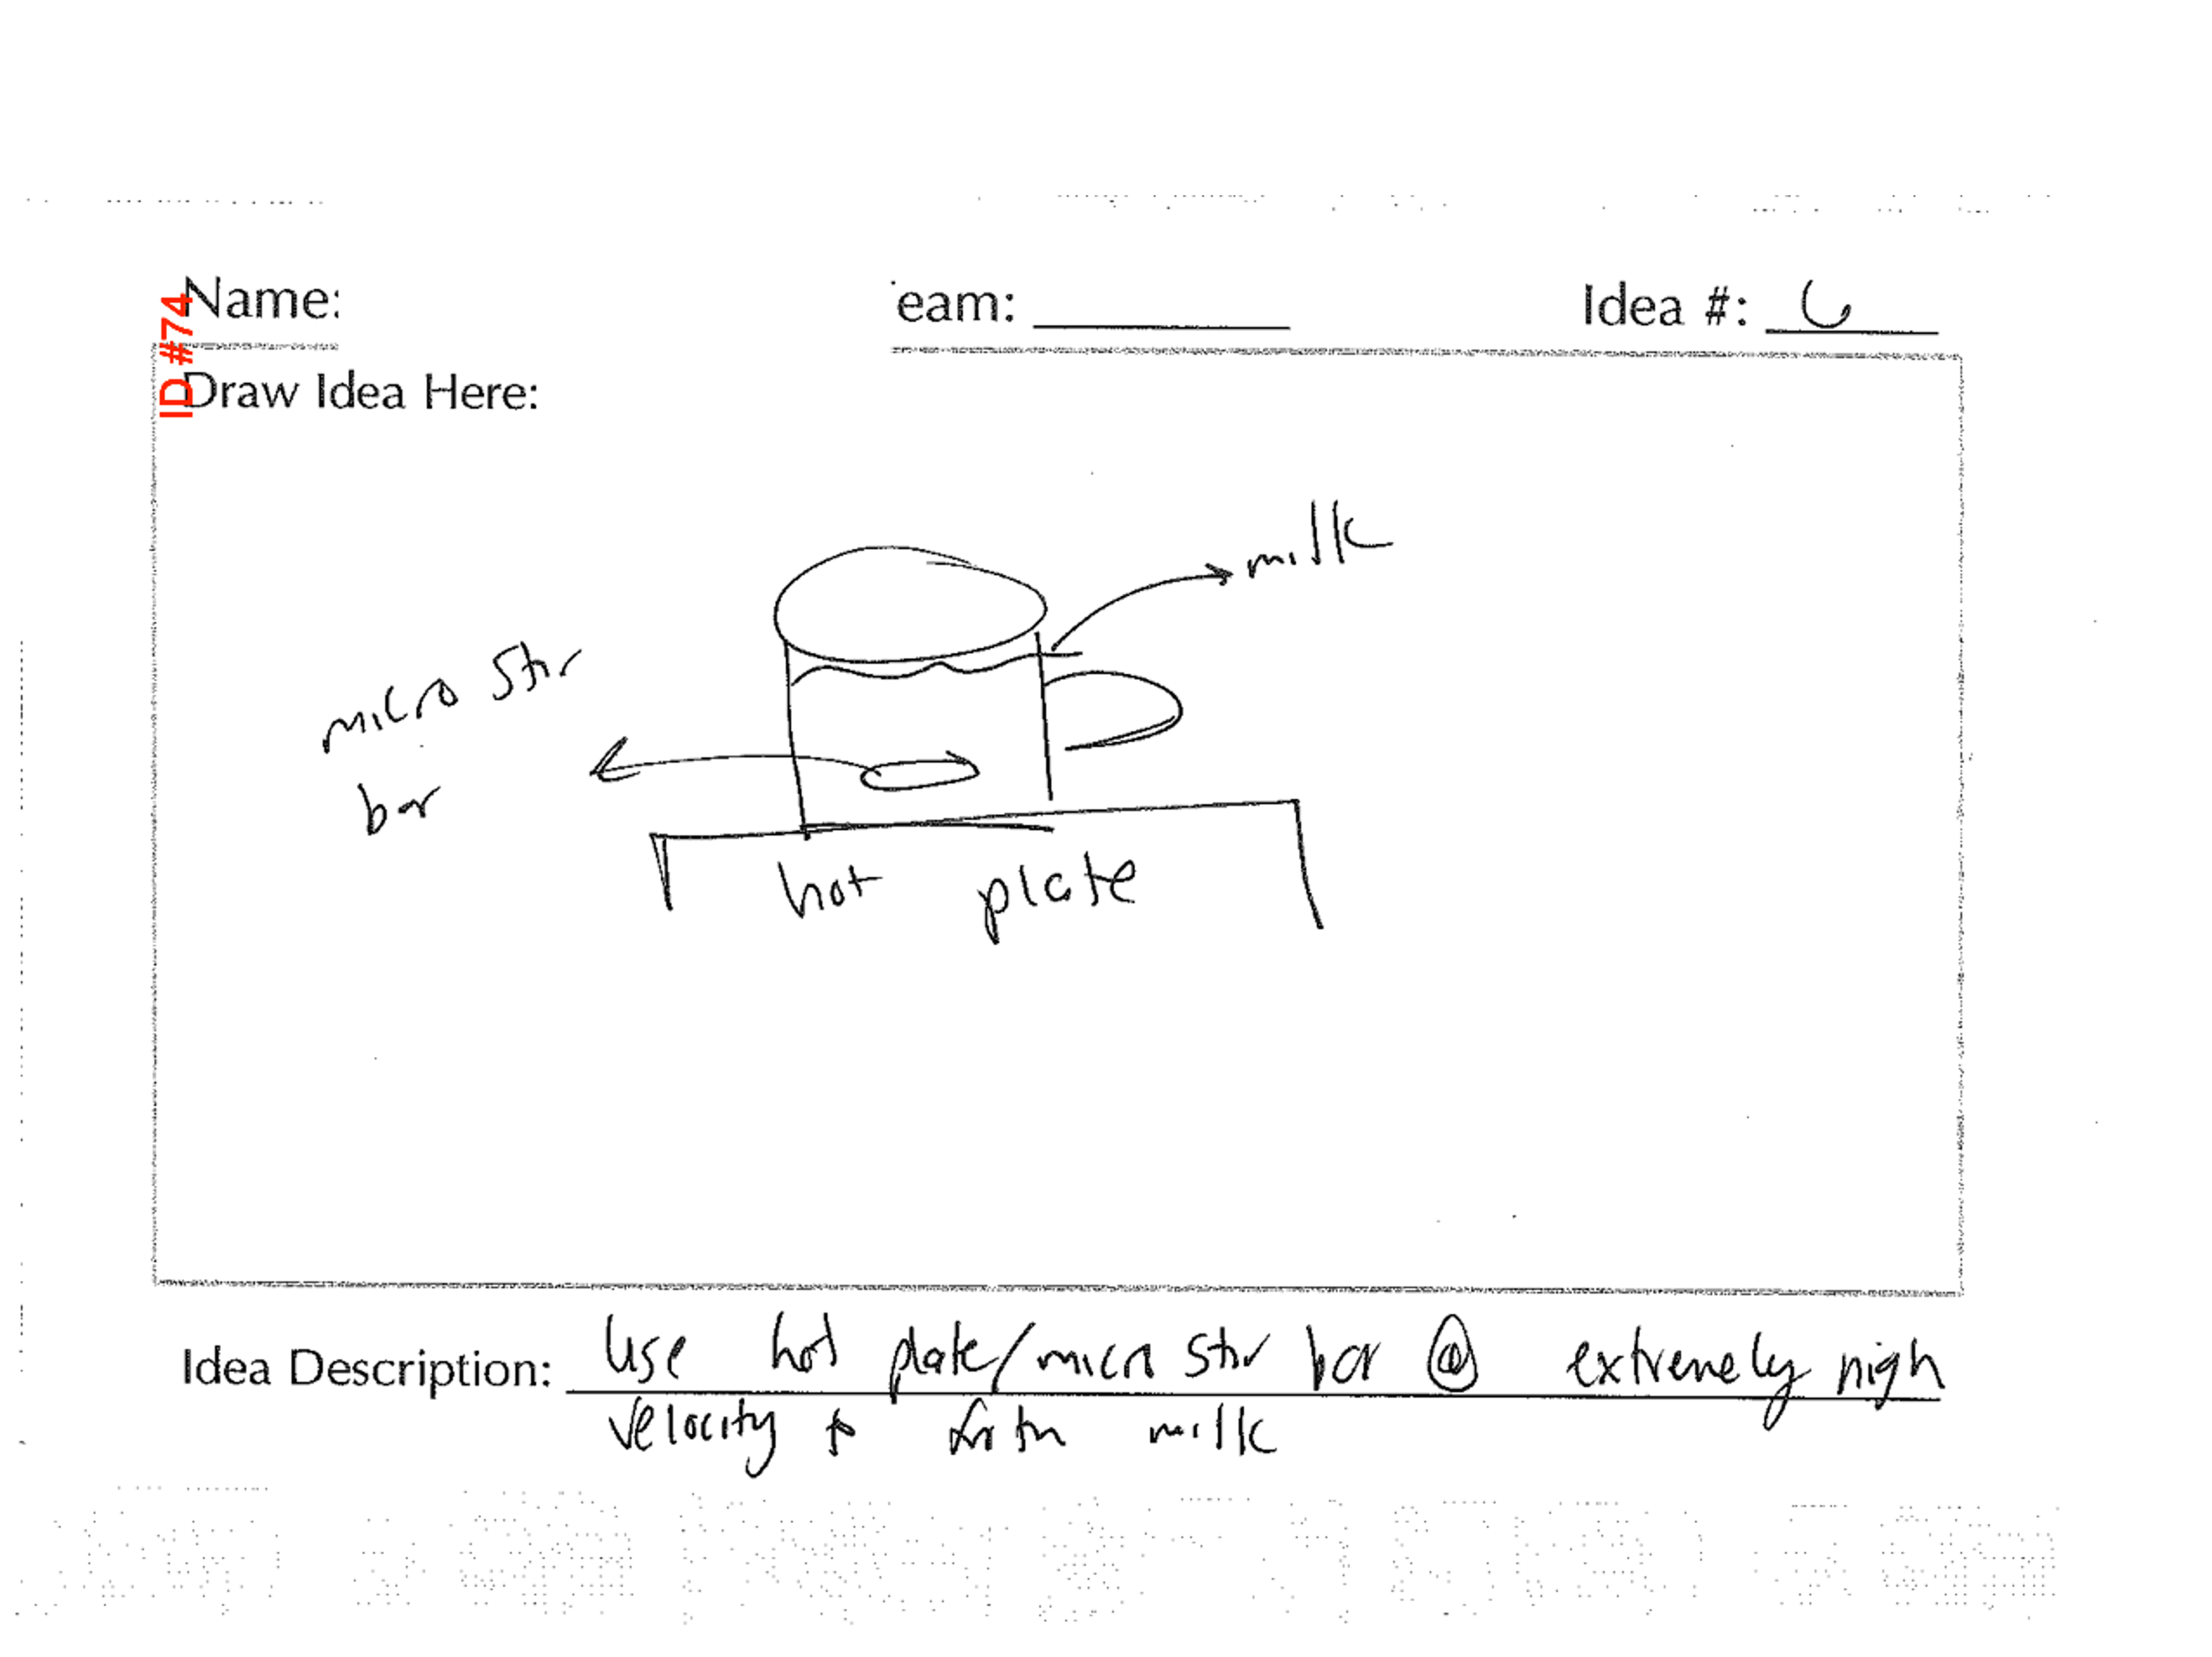 Name:
eam:
Idea #: 6
ID #74
Draw Idea Here:
milk
micro stir
bar
hot plate
Idea Description: Use hot plate/micro stir bar @ extremely high
velocity to froth milk